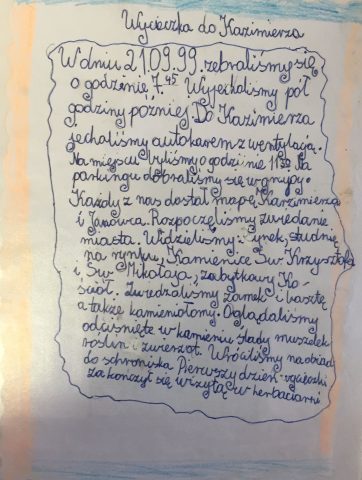 Wycieczka do Kazimierza
W dniu 21.09.99. zebraliśmy się
o godzienie 7.45 Wyjechaliśmy pół
godziny później. Do Kazimierza
jechaliśmy autokarem z wentylacją.
Na miejscu byliśmy o godzinie 11.30 Na
parkingu dobraliśmy się w grupy.
Każdy z nas dostał mapę Kazimierza
i Janowca. Rozpoczęliśmy zwiedanie
miasta. Widzieliśmy: rynek, studnię
na rynku, Kamienice Św. Krzysztofa
i Św. Mikołaja, zabytkowy Ko-
ściół. Zwiedzaliśmy zamek i basztę
a także kamieniołomy. Oglądaliśmy
odciśnięte w kamieniu ślady muszelek
roślin i zwierząt. Wróciliśmy na obiad
do schroniska Pierwszy dzień wycieczki
zakończył się wizytą w herbaciarni